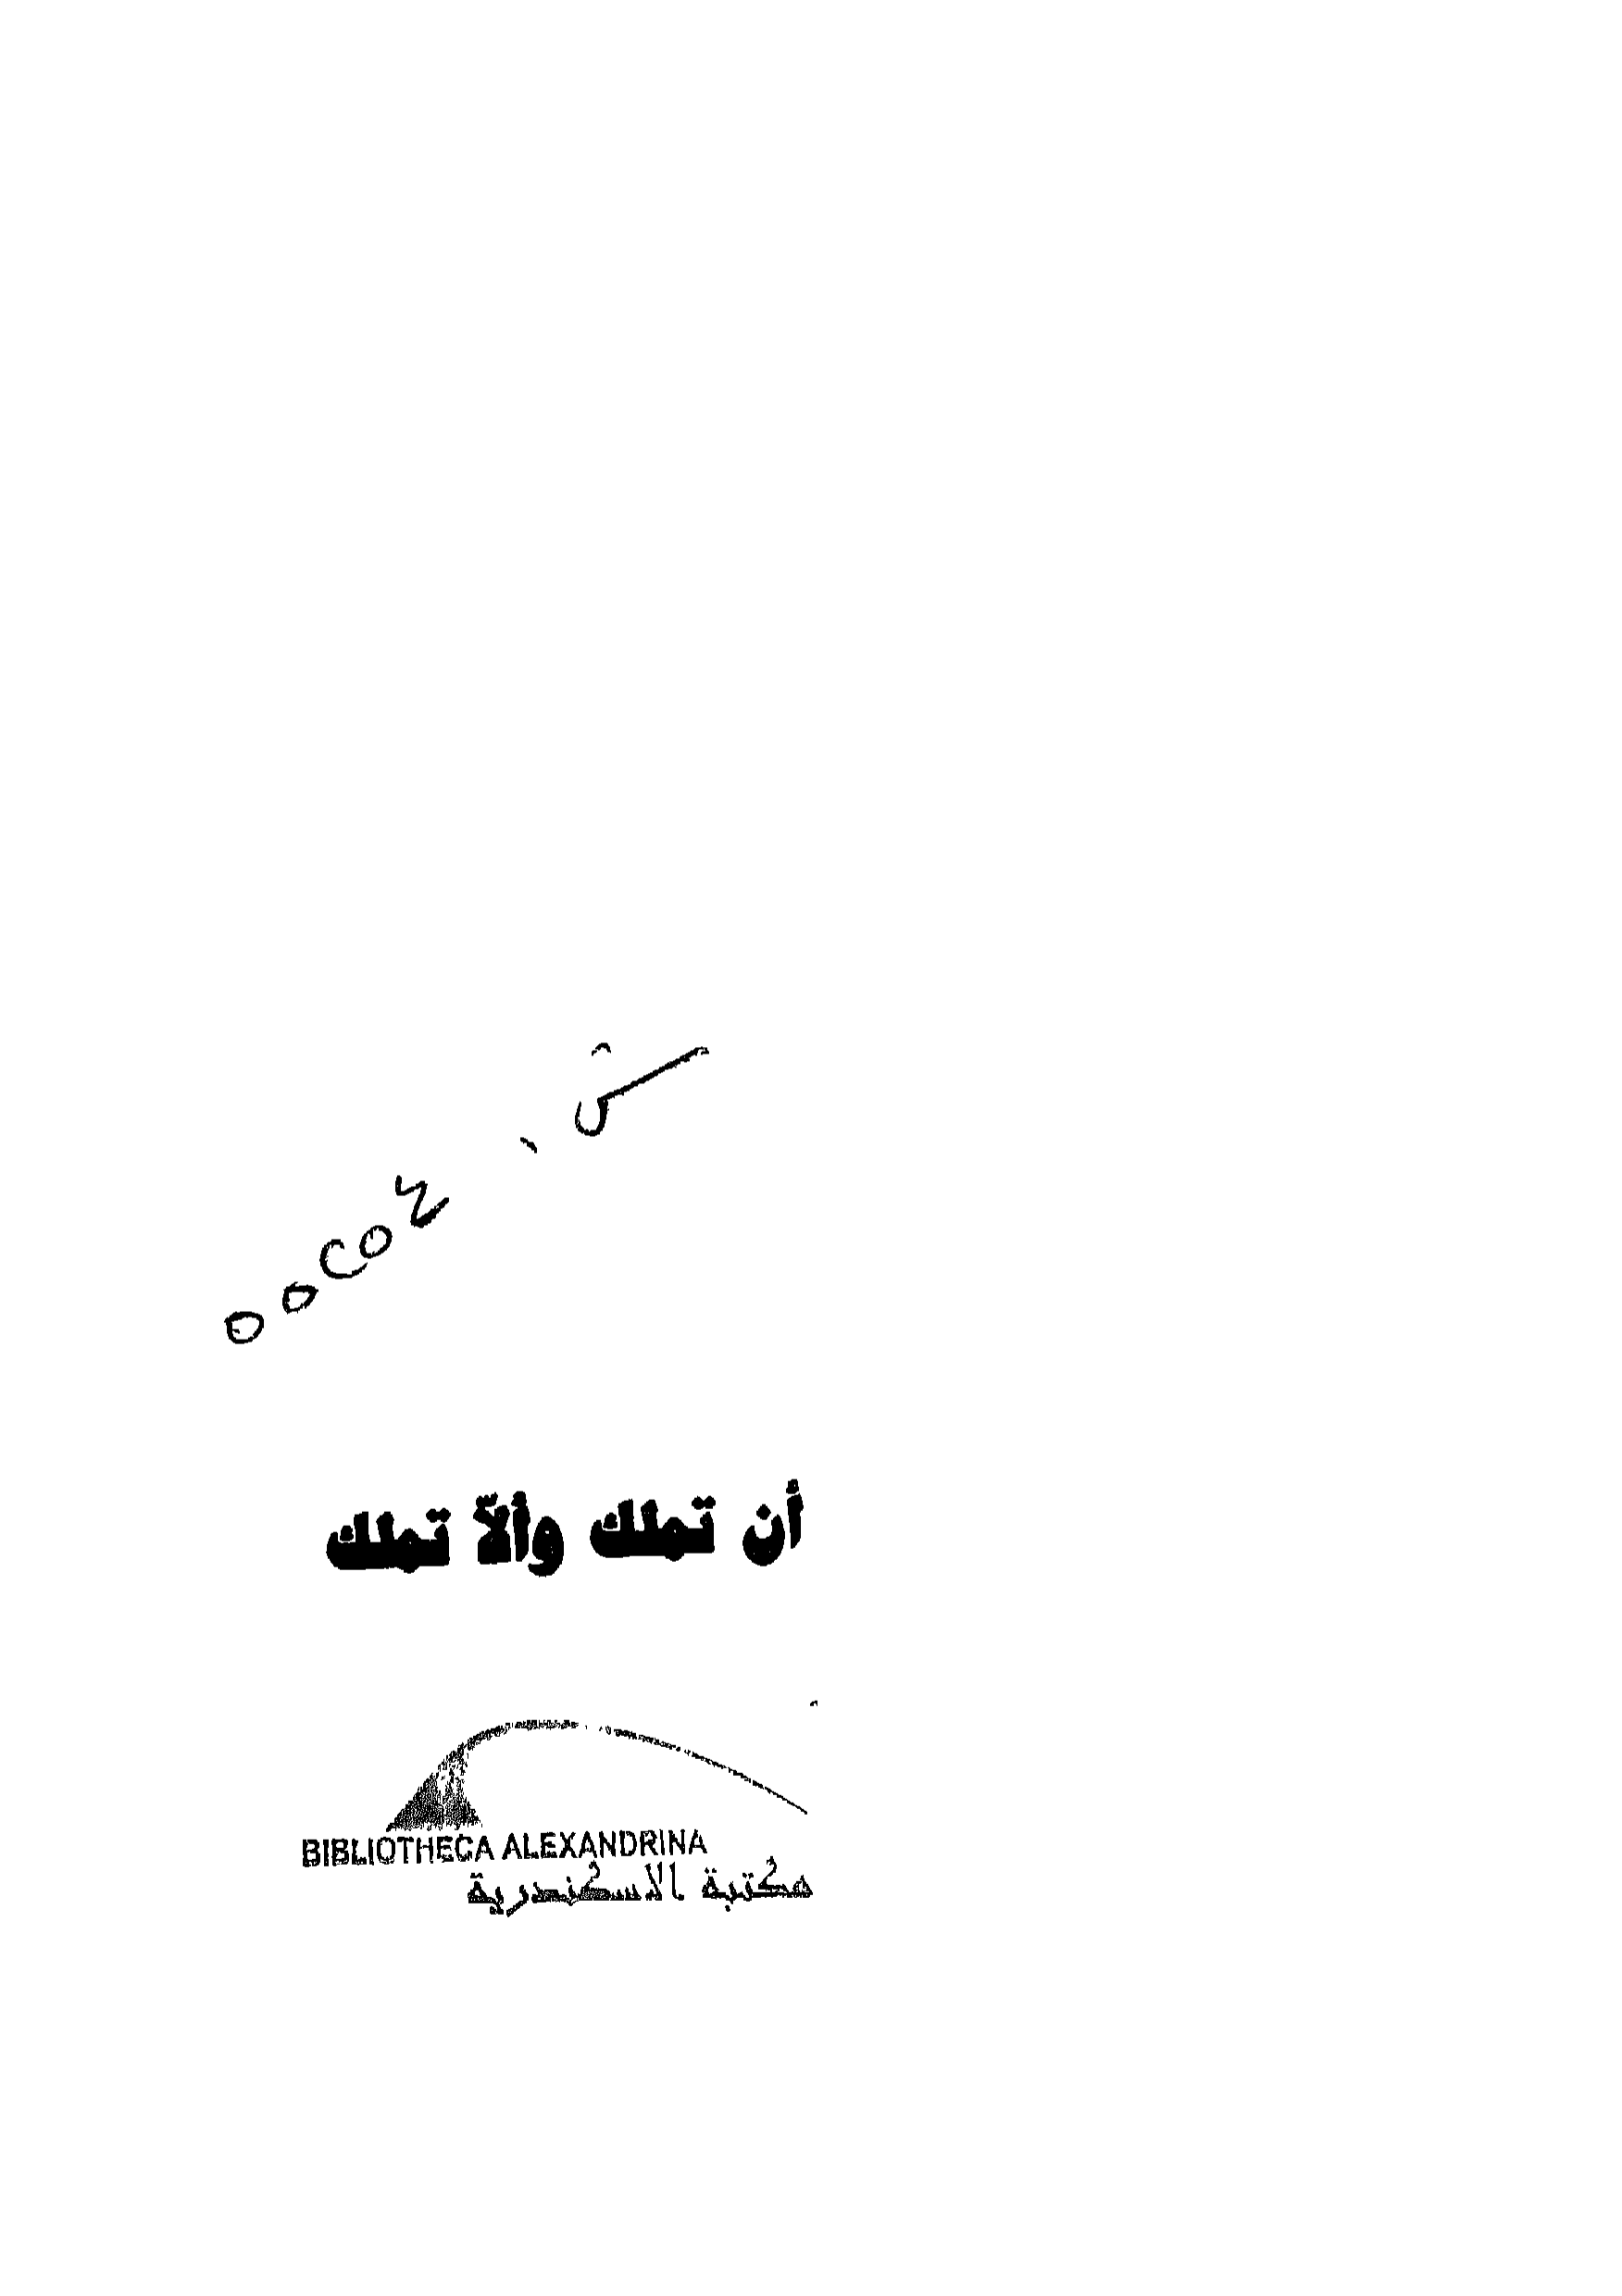 أن تملك وألاّ تملك
BIBLIOTHECA ALEXANDRINA
مكتبة الاسكندرية